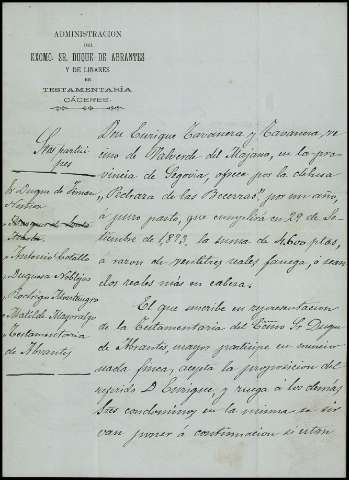 ADMINISTRACION
DEL
EXCMO. SR. DUQUE DE ABRANTES
Y DE LINARES
EN
TESTAMENTARÍA
CÁCERES
Sres partici
pes
Sr Duque de Fernan
Nuñez
Marques de
Antonio Cotallo
Duquesa Noblejas
Rodrigo Montenegro
Matilde Mayoralgo
Testamentaria
de Abrantes
Don Enrique Tavanera y Tavanera, ve
cino de Valverde del Majano, en la pro
vincia de Segovia, ofrece por la dehesa
"Pedraza de las Becerras" por un año,
á puro pasto, que cumplirá en 29 de Se
tiembre de 1,893, la suma de 4,600 ptas,
á razon de veintitres reales fanega, ó sean
dos reales más en cabeza.
El que suscribe en representacion
de la Testamentaría del Excmo Sr Duque
de Abrantes, mayor participe en
nada finca, acepta la proposicion del
referido D Enrique, y ruega á los demás
Sres condominos en la misma se sir
van poner á continuacion si estan